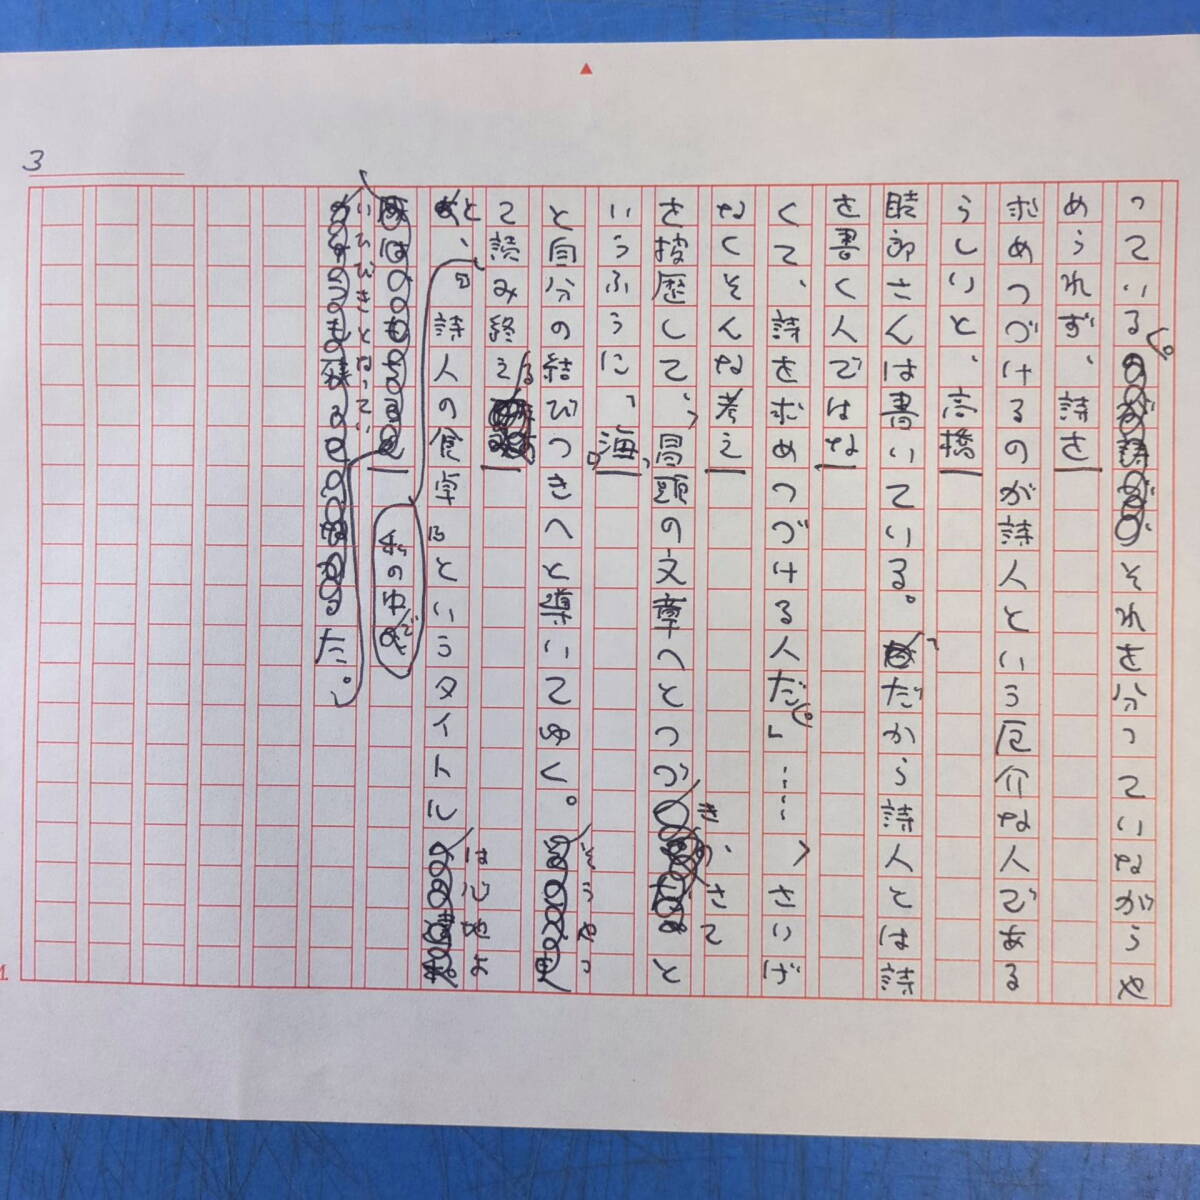 3
っている。それを分っていながらや
められず、詩を
求めつづけるのが詩人という厄介な人である
らしいと、高橋
睦郎さんは書いている。「だから詩人とは詩
を書く人ではな
くて、詩を求めつづける人だ。」……〉さいげ
なくそんな考え
を披歴して、冒頭の文章へとつづき、さてと
いうふうに、「海」
と自分の結びつきへと導いてゆく。そうやっ
て読み終える
と、『詩人の食卓』というタイトルは心地よ
私の中で
いひびきとなってい
た。